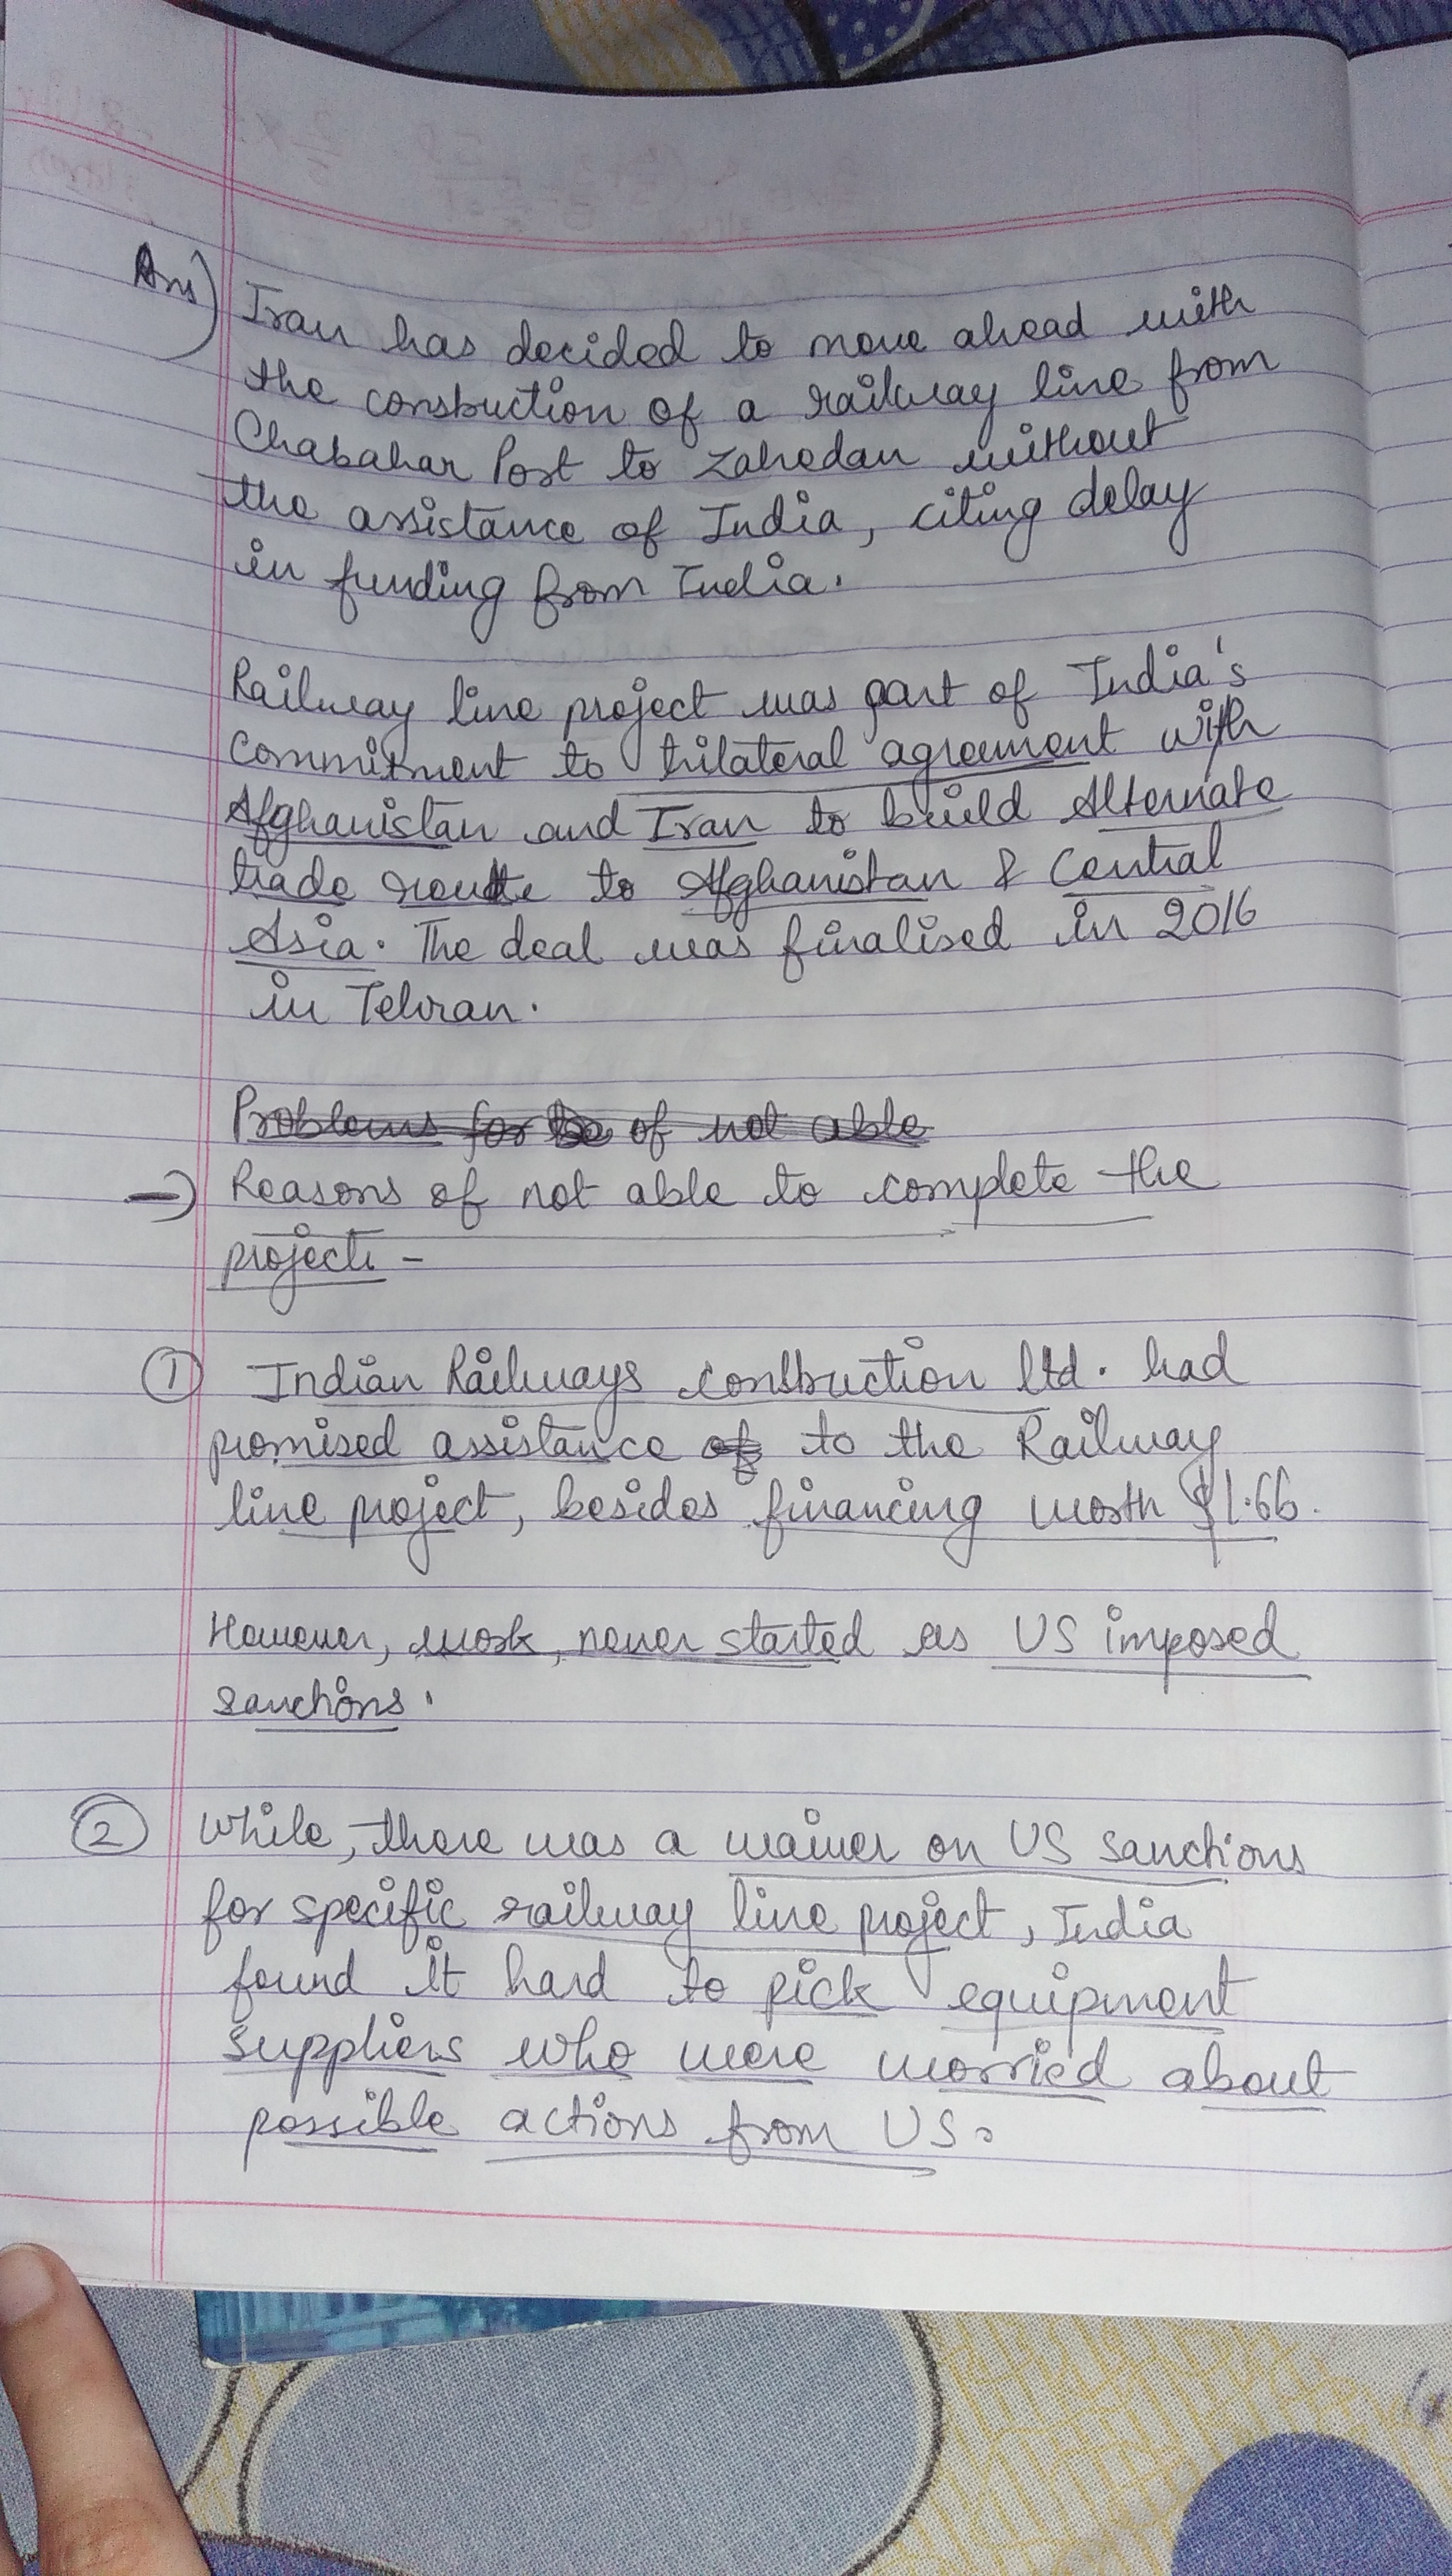 Ans) Iran has decided to move ahead with
the construction of a railway line from
Chabahar Port to Zahedan without
the assistance of India, citing delay
in funding from India.
Railway line project was part of India's
commitment to trilateral agreement with
Afghanistan and Iran to build Alternate
trade route to Afghanistan & Central
Asia. The deal was finalised in 2016
in Tehran.
Problems for be of not able
→ Reasons of not able to complete the
project :-
① Indian Railways construction ltd. had
promised assistance of to the Railway
line project, besides financing worth $1.6b.
However, work, never started as US imposed
sanctions.
② While, there was a waiver on US sanctions
for specific railway line project, India
found it hard to pick equipment
suppliers who were worried about
possible actions from US.